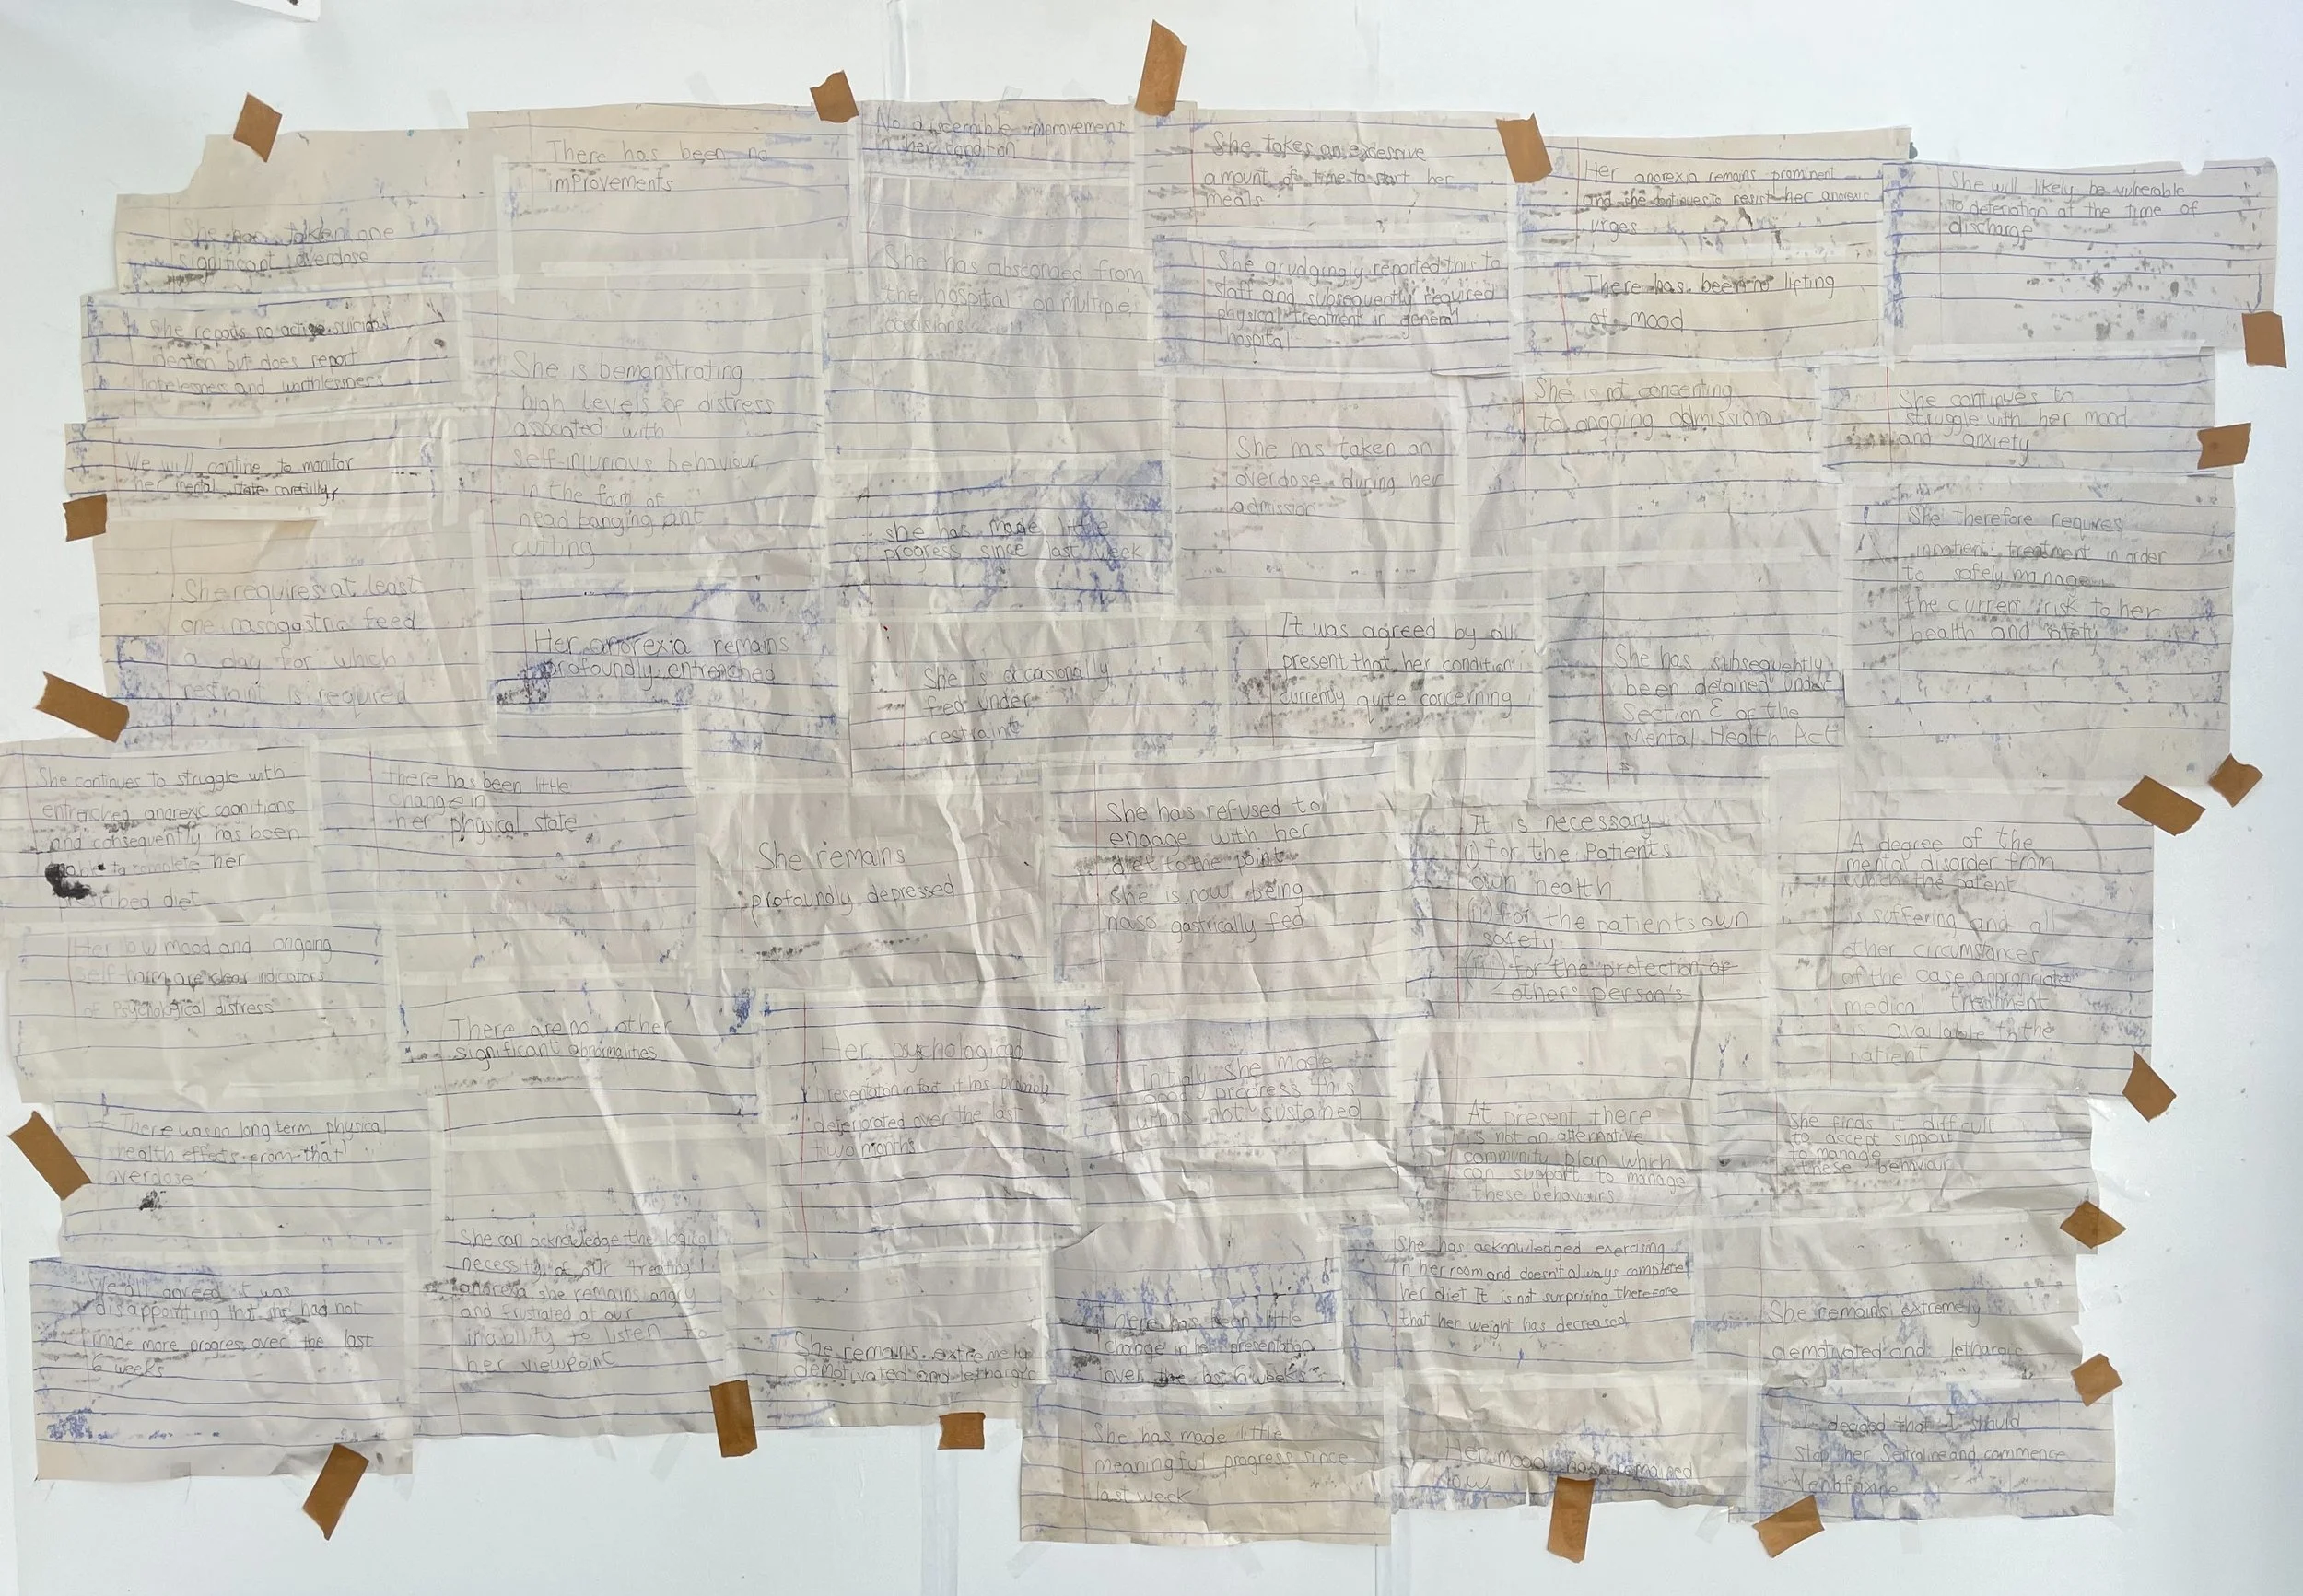 She has taken one
significant overdose
There has been no
improvements
No discernible improvement
in her condition
She takes an excessive
amount of time to start her
meals
Her anorexia remains prominent
and she continues to resist her anorexic
urges
She will likely be vulnerable
to deterioration at the time of
discharge
She reports no active suicidal
ideation but does report
hopelessness and worthlessness
She has absconded from
the hospital on multiple
occasions
She grudgingly reported this to
staff and subsequently required
physical treatment in general
hospital
There has been no lifting
of mood
We will contine to monitor
her mental state carefully
She is bemonstrating
high levels of distress
asociated with
self-injurious behaviour
in the form of
head banging ant
cutting
She has taken an
overdose during her
admission
She is not consenting
to ongoing admission
She continues to
struggle with her mood
and anxiety
she has made little
progress since last week
She therefore requires
inpatient treatment in order
to safely manage
the current risk to her
health and safety
She requires at least
one nasogastric feed
a day for which
restraint is required
Her anorexia remains
profoundly entrenched
She is occasionally
fed under
restraint
It was agreed by all
present that her condition
currently quite concerning
She has subsequently
been detained under
Section of the
Mental Health Act
She continues to struggle with
entrenched anorexic cognitions
and consequently has been
to complete her
prescribed diet
there has been little
change in
her physical state
She remains
profoundly depressed
She has refused to
engage with her
diet to the point
she is now being
naso gastrically fed
It is necessary
(i) for the Patients
own health
(ii) for the patients own
safety
(iii) for the protection of
other person's
A degree of the
mental disorder from
which the patient
is suffering and all
other circumstances
of the case appropriate
medical treatment
is available to the
patient
Her low mood and ongoing
self-harm are clear indicators
of Psychological distress
There are no other
significant abnormalities
Her psychological
presentation in fact it has probably
deteriorated over the last
two months
Initially she made
good progress this
was not sustained
At present there
is not an alternative
community plan which
can support to manage
these behaviours
She finds it difficult
to accept support
to manage
these behaviour
There was no long term physical
health effects from that
overdose
She can acknowledge the logical
necessity of our treating
anorexia she remains angry
and frustrated at our
inability to listen to
her viewpoint
She has acknowledged exercising
in her room and doesn't always complete
her diet It is not surprising therefore
that her weight has decreased
We all agreed it was
disappointing that she had not
made more progress over the last
6 weeks
She remains extremely
demotivated and lethargic
There has been little
change in her presentation
over the last 6 weeks
She remains extremely
demotivated and lethargic
She has made little
meaningful progress since
last week
Her mood has remained
low
I decided that I should
stop her Sertraline and commence